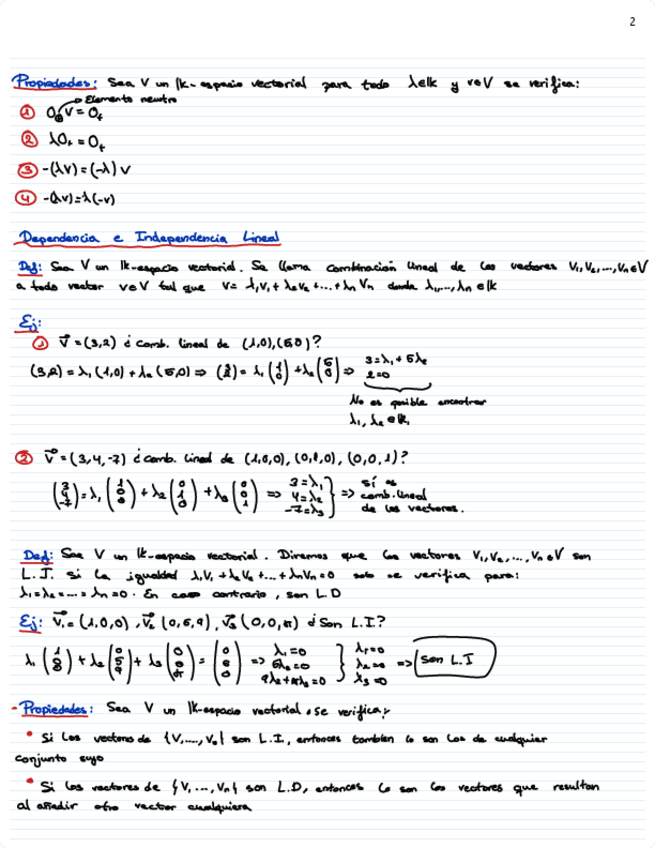 2
Propiedades: Sea V un lk-espacio vectorial para todo λ∈lk y v∈V se verifica:
→ Elemento neutro
① 0₊v = 0₊
② λ0₊ = 0₊
③ -(λv) = (-λ)v
④ -(λv) = λ(-v)
Dependencia e Independencia Lineal
Def: Sea V un lk-espacio vectorial. Se llama combinación lineal de los vectores V₁, V₂, ..., Vₙ∈V
a todo vector v∈V tal que v= λ₁V₁ + λ₂V₂ +...+ λₙVₙ donde λ₁,...,λₙ ∈ lk
Ej:
① v⃗ = (3,2) ¿ comb. lineal de (1,0), (5,0)?
(3,2) = λ₁(1,0) + λ₂(5,0) ⇒ (3 2) = λ₁(1 0) + λ₂(5 0) ⇒ 3=λ₁+5λ₂
2=0
No es posible encontrar
λ₁, λ₂ ∈ lk
② v⃗ = (3,4,-7) ¿ comb. lineal de (1,0,0), (0,1,0), (0,0,1)?
(3 4 -7) = λ₁(1 0 0) + λ₂(0 1 0) + λ₃(0 0 1) ⇒ 3=λ₁ 4=λ₂ -7=λ₃ } ⇒ sí es
comb. lineal
de los vectores.
Def: Sea V un lk-espacio vectorial. Diremos que los vectores V₁, V₂, ..., Vₙ ∈ V son
L.I. si la igualdad λ₁V₁ + λ₂V₂ +...+ λₙVₙ=0 solo se verifica para:
λ₁=λ₂=...= λₙ=0. En caso contrario, son L.D
Ej: v⃗₁ = (1,0,0), v⃗₂ (0,5,9), v⃗₃ (0,0,π) ¿ Son L.I?
λ₁(1 0 0) + λ₂(0 5 9) + λ₃(0 0 π) = (0 0 0) ⇒ λ₁=0 5λ₂=0 9λ₂+πλ₃=0 } λ₁=0 λ₂=0 λ₃=0 ⇒ Son L.I
- Propiedades: Sea V un lk-espacio vectorial. Se verifica:
• Si los vectores de {V₁,...,Vₙ} son L.I., entonces también lo son los de cualquier
conjunto suyo
• Si los vectores de {V₁,...,Vₙ} son L.D, entonces lo son los vectores que resultan
al añadir otro vector cualquiera